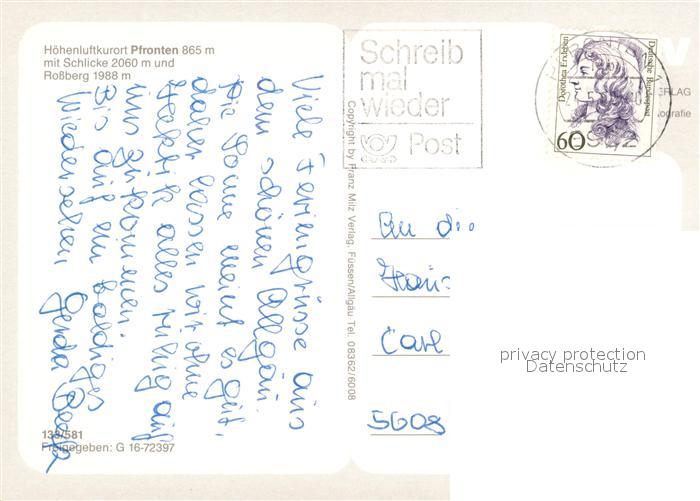 Höhenluftkurort Pfronten 865 m
mit Schlicke 2060 m und
Roßberg 1988 m
Viele Feriengrüsse aus
dem schönen Allgäu.
Die Sonne meint es gut,
daher lassen wir ohne
alles ruhig auf
uns zukommen.
Bis auf ein baldiges
Wiedersehen Gerda
133/581
Freigegeben: G 16-72397
Copyright by Franz Milz Verlag, Füssen/Allgäu Tel. 08362/6008
Schreib
mal
wieder
Post
Dorothea Erxleben
Deutsche Bundespost
60
ERLAG
ografie
An die
Carl
5608
privacy protection
Datenschutz